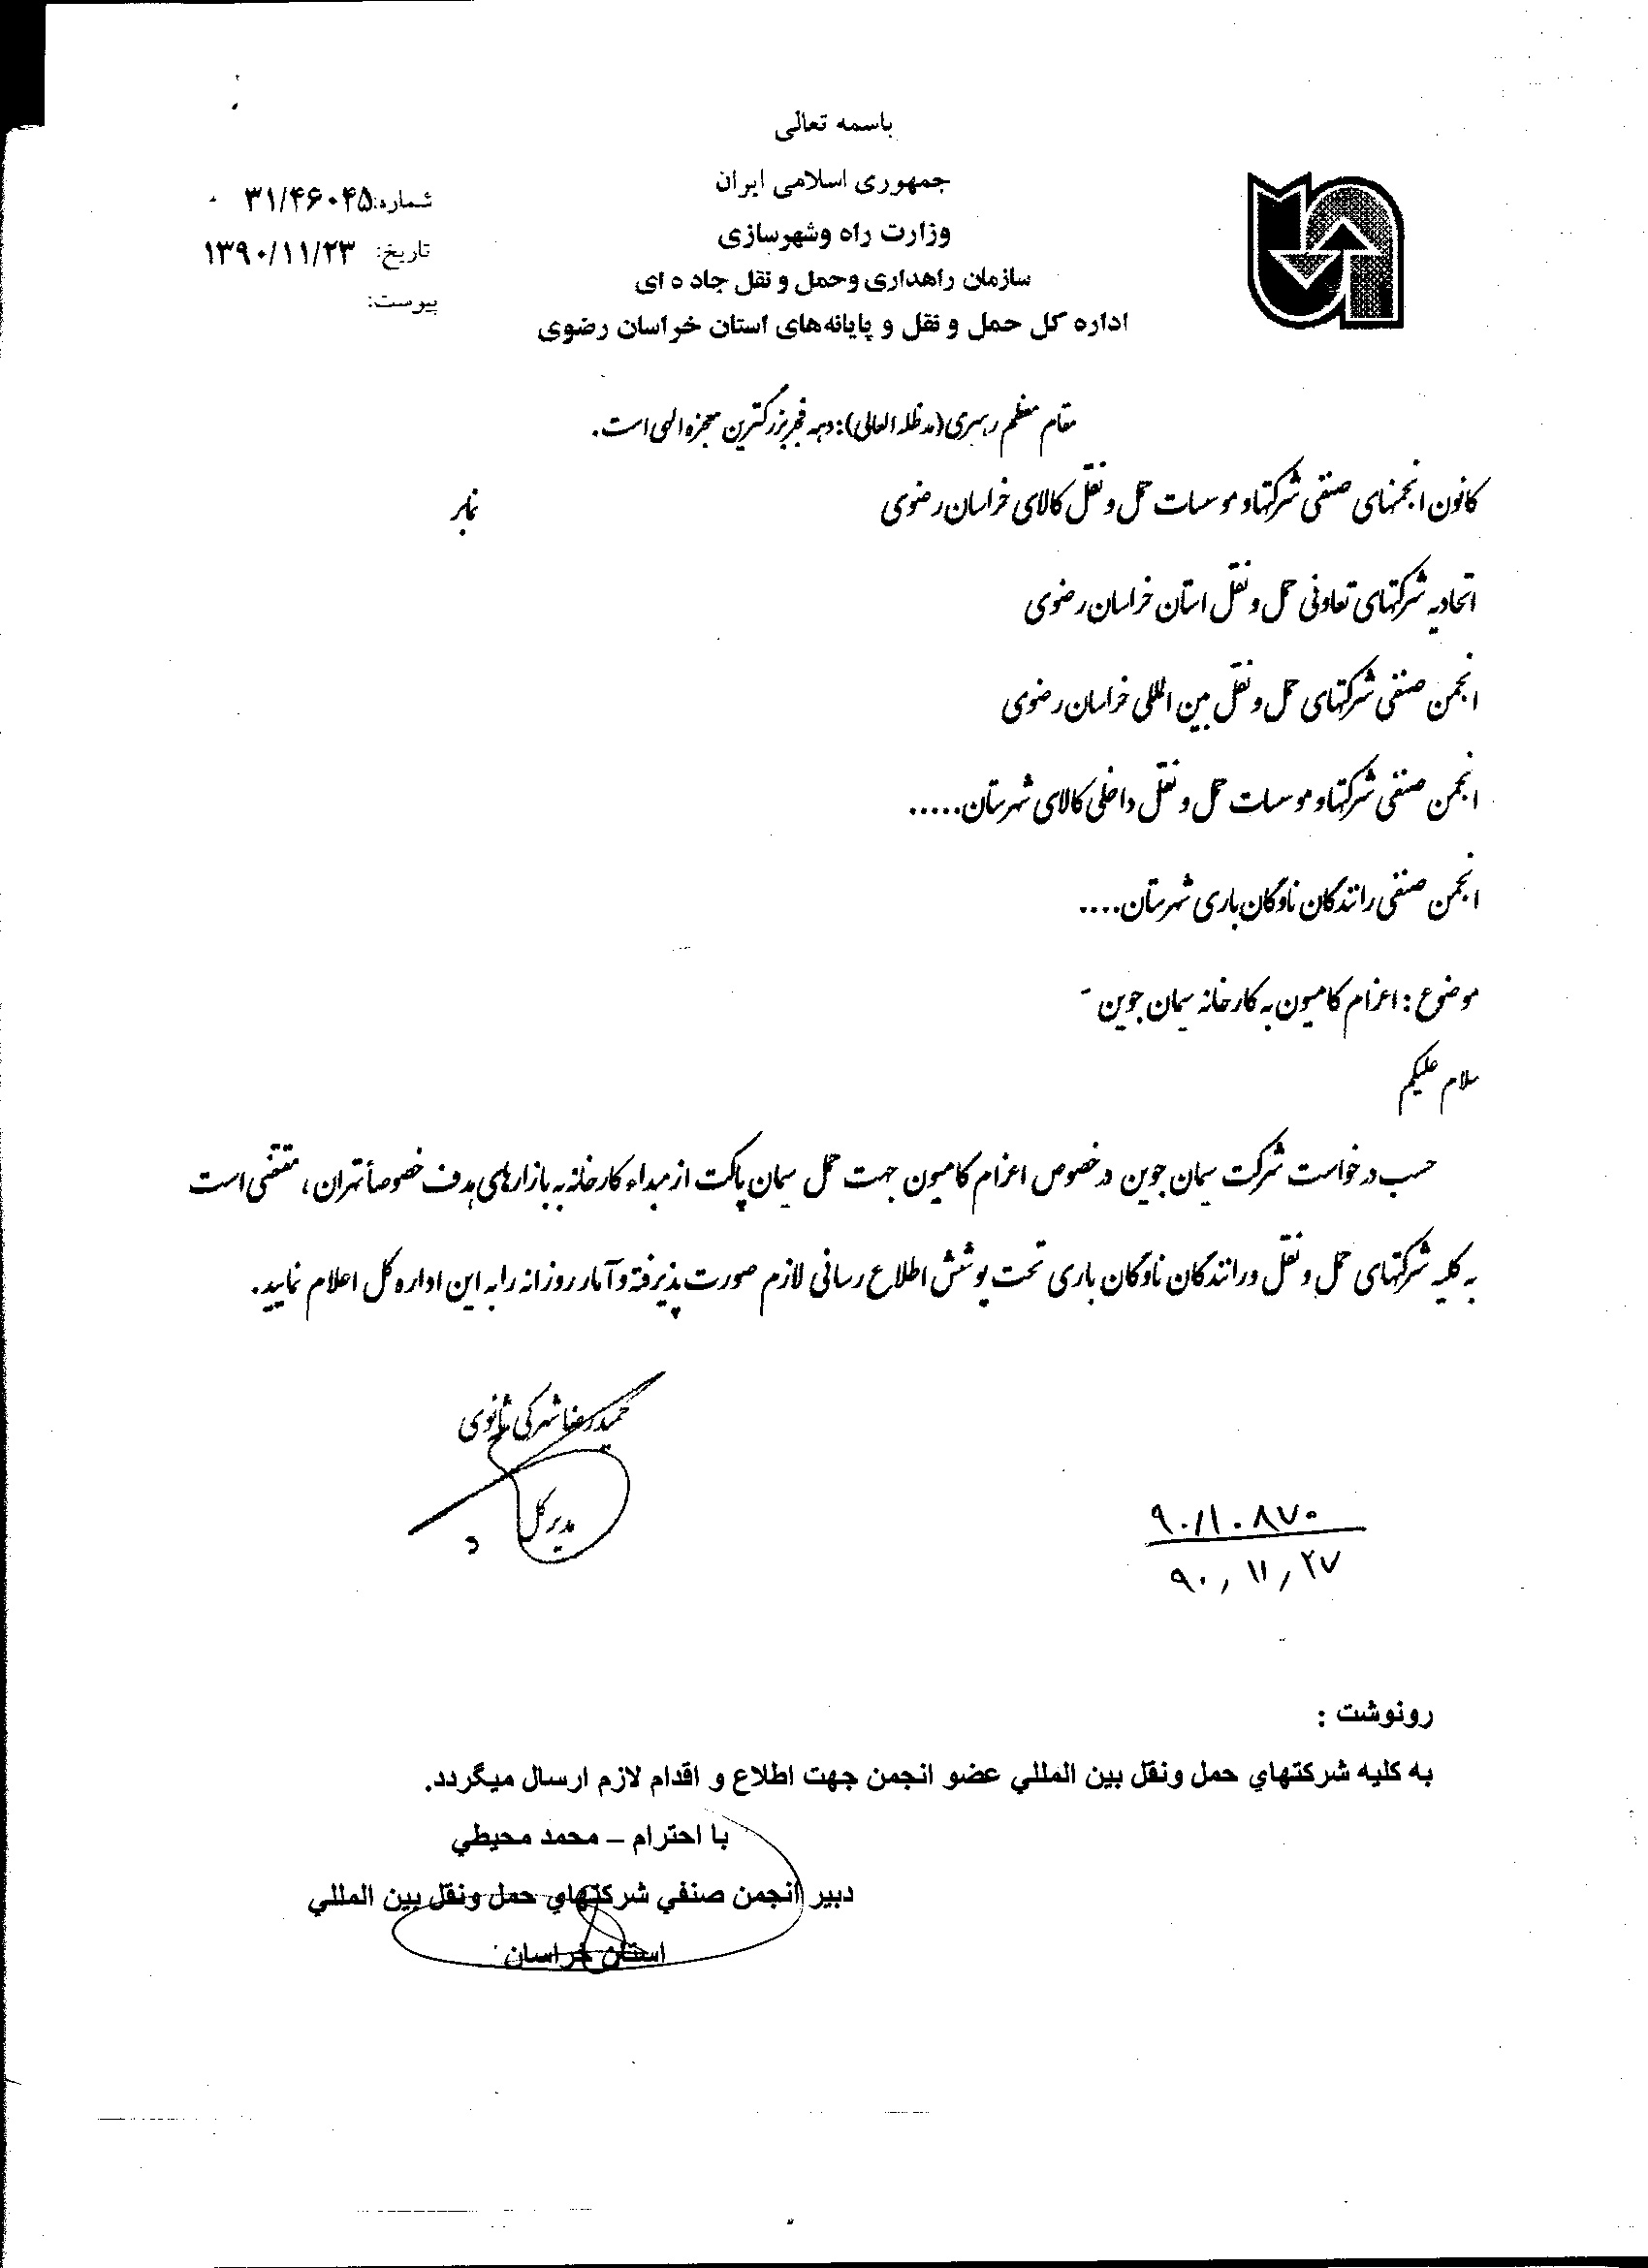 باسمه تعالی
جمهوری اسلامی ایران
وزارت راه وشهرسازی
سازمان راهداری وحمل و نقل جاده ای
اداره کل حمل و نقل و پایانه‌های استان خراسان رضوی
شماره: ۳۱/۴۶۰۴۵
تاریخ: ۱۳۹۰/۱۱/۲۳
پیوست:
مقام معظم رهبری(مدظله العالی): دهه فجر بزرگترین معجزه الهی است.
کانون انجمنهای صنفی شرکتها و موسسات حمل و نقل کالای خراسان رضوی
نمابر
اتحادیه شرکتهای تعاونی حمل و نقل استان خراسان رضوی
انجمن صنفی شرکتهای حمل و نقل بین المللی خراسان رضوی
انجمن صنفی شرکتها و موسسات حمل و نقل داخلی کالای شهرستان.....
انجمن صنفی رانندگان ناوگان باری شهرستان....
موضوع : اعزام کامیون به کارخانه سیمان جوین -
سلام علیکم
حسب درخواست شرکت سیمان جوین درخصوص اعزام کامیون جهت حمل سیمان پاکت از مبداء کارخانه به بازارهای هدف خصوصأ تهران ، مقتضی است
به کلیه شرکتهای حمل و نقل و رانندگان ناوگان باری تحت پوشش اطلاع رسانی لازم صورت پذیرفته و آمار روزانه را به این اداره کل اعلام نمایید.
حمیدرضا شهرکی ثانوی
مدیر کل
۹۰/۱۰۸۷۰
۹۰,۱۱,۲۷
رونوشت :
به کلیه شرکتهاي حمل ونقل بین المللي عضو انجمن جهت اطلاع و اقدام لازم ارسال میگردد.
با احترام – محمد محیطي
دبیر انجمن صنفي شرکتهاي حمل ونقل بین المللي
استان خراسان